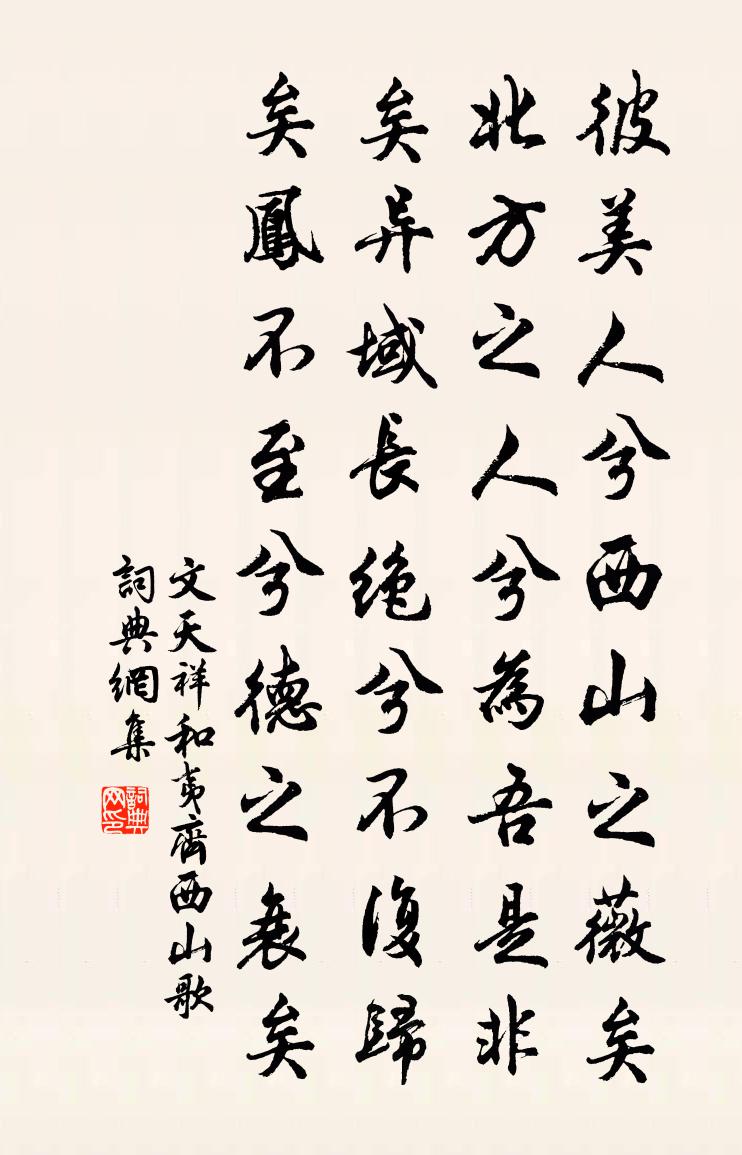 彼美人兮西山之薇矣
北方之人兮為吾是非
矣异域長绝兮不復歸
矣鳳不至兮德之衰矣
文天祥和夷齊西山歌
詞典網集
詞典
网印